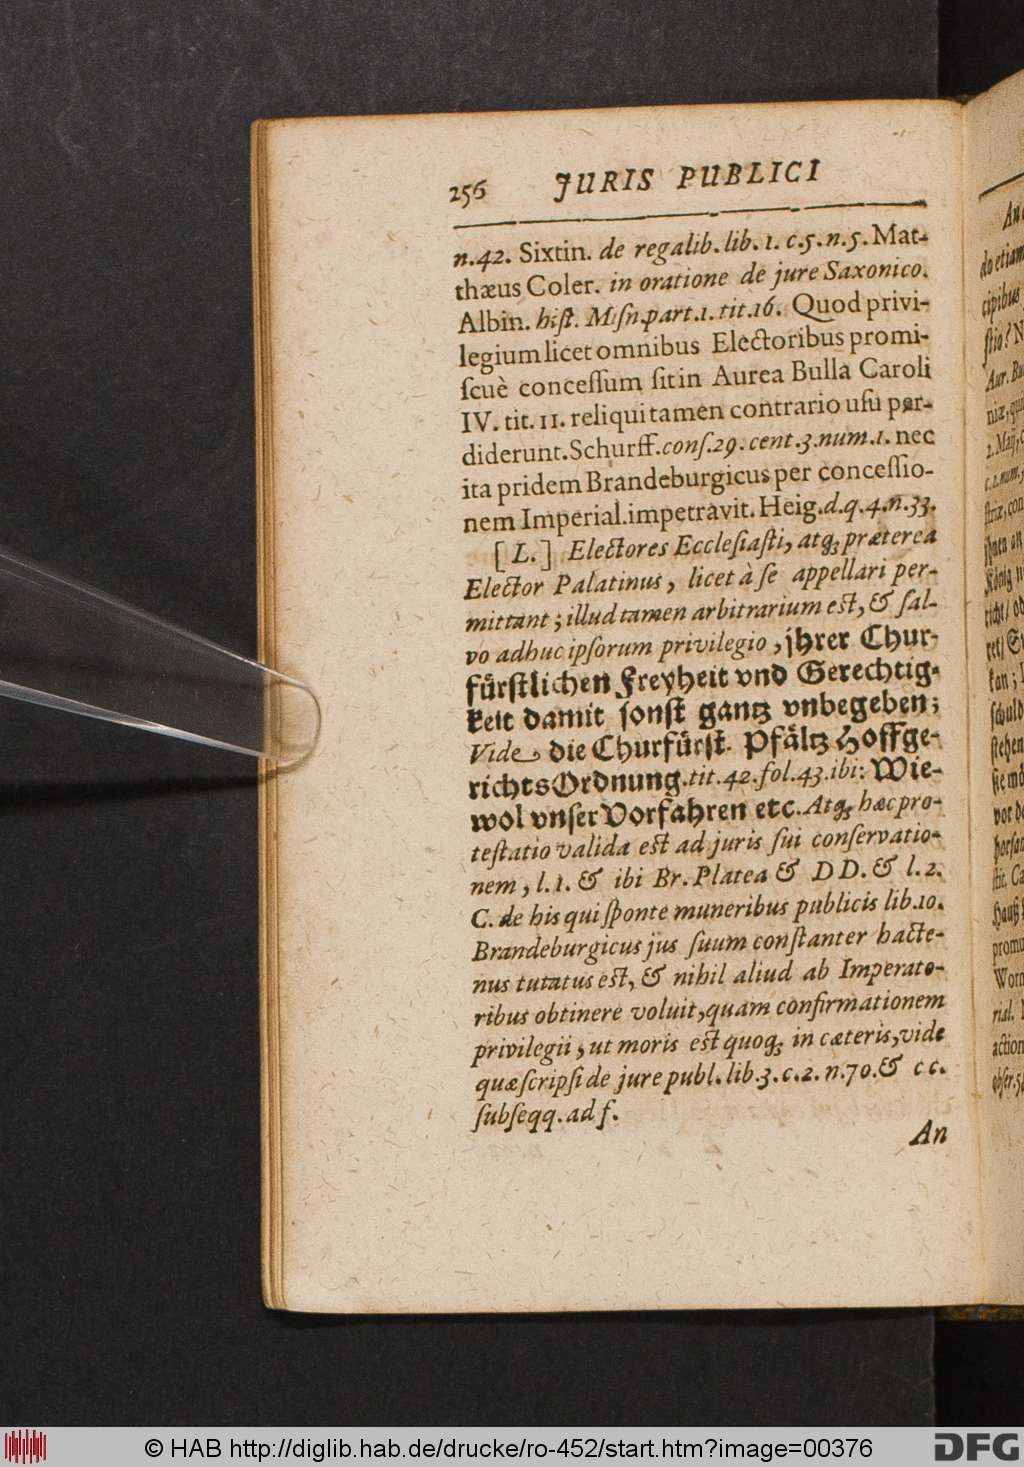 256 JURIS PUBLICI
n.42. Sixtin. de regalib. lib. 1. c.5. n.5. Mat-
thæus Coler. in oratione de jure Saxonico.
Albin. hiſt. Miſn.part.1. tit.16. Quod privi-
legium licet omnibus Electoribus promi-
ſcuè conceſſum ſit in Aurea Bulla Caroli
IV. tit. 11. reliqui tamen contrario uſu per-
diderunt. Schurff. conſ.29. cent.3. num.1. nec
ita pridem Brandeburgicus per conceſſio-
nem Imperial. impetravit. Heig. d.q.4.n.33.
[ L. ] Electores Eccleſiaſti, atq; præterea
Elector Palatinus, licet à ſe appellari per-
mittant; illud tamen arbitrarium eſt, & ſal-
vo adhuc ipſorum privilegio, jhrer Chur-
fürſtlichen Freyheit vnd Gerechtig-
keit damit ſonſt gantz vnbegeben;
Vide, die Churfürſt. Pfältz Hoffge-
richts Ordnung. tit. 42. fol. 43. ibi: Wie-
wol vnſer Vorfahren etc. Atq; hæc pro-
teſtatio valida eſt ad juris ſui conſervatio-
nem, l. 1. & ibi Br. Platea & DD. & l. 2.
C. de his qui ſponte muneribus publicis lib.10.
Brandeburgicus jus ſuum conſtanter hacte-
nus tutatus eſt, & nihil aliud ab Imperato-
ribus obtinere voluit, quam confirmationem
privilegii, ut moris eſt quoq; in cæteris, vide
quæ ſcripſi de jure publ. lib.3. c.2. n.70. & cc.
ſubſeqq. ad f.
An
An
do etiam
cipibus
ſtio? N
Aur. Bu
niæ, qu
2. Maij, c
c.2. num.
ſtriæ, con
König
richt / od
ret / S
kan; 
ſchuld
ſtehen
vor d
ſtit. Ca
Hauß
promu
Worm
rial. 
action
obſer. 5
© HAB http://diglib.hab.de/drucke/ro-452/start.htm?image=00376
DFG